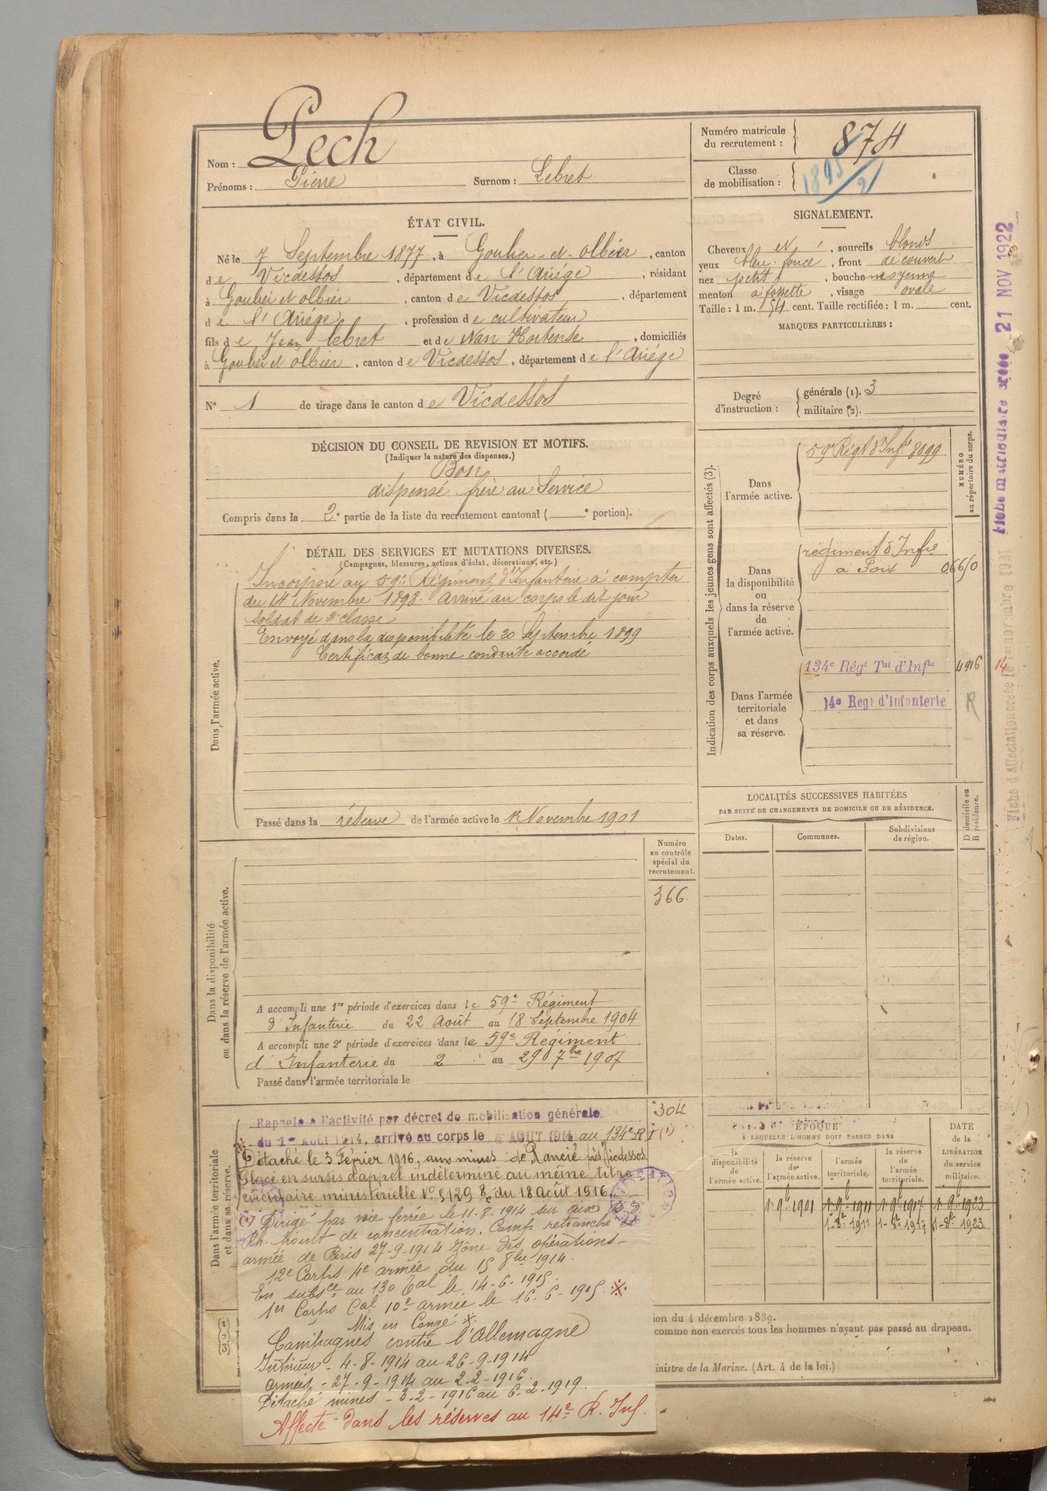 Nom : Pech
Prénoms : Pierre Surnom : Lebret
Numéro matricule du recrutement : 874
Classe de mobilisation : 1895/21
ÉTAT CIVIL.
Né le 7 Septembre 1877, à Goulier et olbier, canton
de Vicdessos, département de l'Ariége, résidant
à Goulier et olbier, canton de Vicdessos, département
de l'Ariége, profession de cultivateur
fils de Jean lebret et de Nan Hortense, domiciliés
à Goulier et olbier, canton de Vicdessos, département de l'Ariége
N° 1 de tirage dans le canton de Vicdessos
SIGNALEMENT.
Cheveux et, sourcils blonds
yeux bleu foncé, front découvert
nez petit, bouche moyenne
menton à fossette, visage ovale
Taille : 1 m. 54 cent. Taille rectifiée : 1 m. cent.
MARQUES PARTICULIÈRES :
Degré d'instruction : générale (1). 3
militaire (2).
DÉCISION DU CONSEIL DE REVISION ET MOTIFS.
(Indiquer la nature des dispenses.)
Bon
dispensé frère au Service
Compris dans la 2e partie de la liste du recrutement cantonal ( e portion).
DÉTAIL DES SERVICES ET MUTATIONS DIVERSES.
(Campagnes, blessures, actions d'éclat, décorations, etc.)
Dans l'armée active.
Incorporé au 59e Régiment d'Infanterie à compter
du 14 Novembre 1898. Arrivé au corps le dit jour
soldat de 2e classe
Envoyé dans la disponibilité le 20 Septembre 1899
Certificat de bonne conduite accordé
Passé dans la réserve de l'armée active le 1er Novembre 1901
Indication des corps auxquels les jeunes gens sont affectés (3).
NUMÉRO au répertoire du corps.
Dans l'armée active.
59e Régt d'Infie 8099
Dans la disponibilité ou dans la réserve de l'armée active.
régiment d'Infie
a Foix 06650
Dans l'armée territoriale et dans sa réserve.
134e Régt Tal d'Infie 4916 14
14e Regt d'Infanterie R
LOCALITÉS SUCCESSIVES HABITÉES
PAR SUITE DE CHANGEMENTS DE DOMICILE OU DE RÉSIDENCE.
Dates. Communes. Subdivisions de région. D domicile ou R résidence.
Dans la disponibilité ou dans la réserve de l'armée active.
Numéro au contrôle spécial du recrutement.
366
A accompli une 1re période d'exercices dans le 59e Régiment
d'Infanterie du 22 Août au 18 Septembre 1904
A accompli une 2e période d'exercices dans le 59e Régiment
d'Infanterie du 2 au 29 7bre 1907
Passé dans l'armée territoriale le
Dans l'armée territoriale et dans sa réserve.
304
Rappelé à l'activité par décret de mobilisation générale
du 1er Août 1914, arrivé au corps le 4 AOUT 1914 au 134e R I (1)
Détaché le 3 Février 1916, aux mines de Rancié près Vicdessos.
Placé en sursis d'appel indéterminé au même titre
circulaire ministérielle N° 5129 du 18 août 1916
(1) Dirigé par voie ferrée le 11-8-1914 sur
de concentration. Camp retranché
armée de Paris 27-9-1914 Zone des opérations
12e Corps 4e armée du 15 8bre 1914.
En subsce au 130 Tal le 14-6-1915.
1er Corps Cal 10e armée le 16-6-1915.
Mis en Congé
Campagnes contre l'Allemagne
Intérieur - 4-8-1914 au 26-9-1914
armées - 27-9-1914 au 2-2-1916.
Détaché mines - 3-2-1916 au 6-2-1919.
Affecté dans les réserves au 14e R. Inf.
ÉPOQUE
À LAQUELLE L'HOMME DOIT PASSER DANS
la disponibilité de l'armée active. la réserve de l'armée active. l'armée territoriale. la réserve de l'armée territoriale.
DATE de la LIBÉRATION du service militaire.
1-9b 1901 1-9b 1911 1-9b 1917 1-9b 1923
1-8b 1911 1-8b 1917 1-8b 1923
ion du 4 décembre 1889.
comme non exercés tous les hommes n'ayant pas passé au drapeau.
inistre de la Marine. (Art. 4 de la loi.)
Fiche matriculaire créée 21 NOV 1922